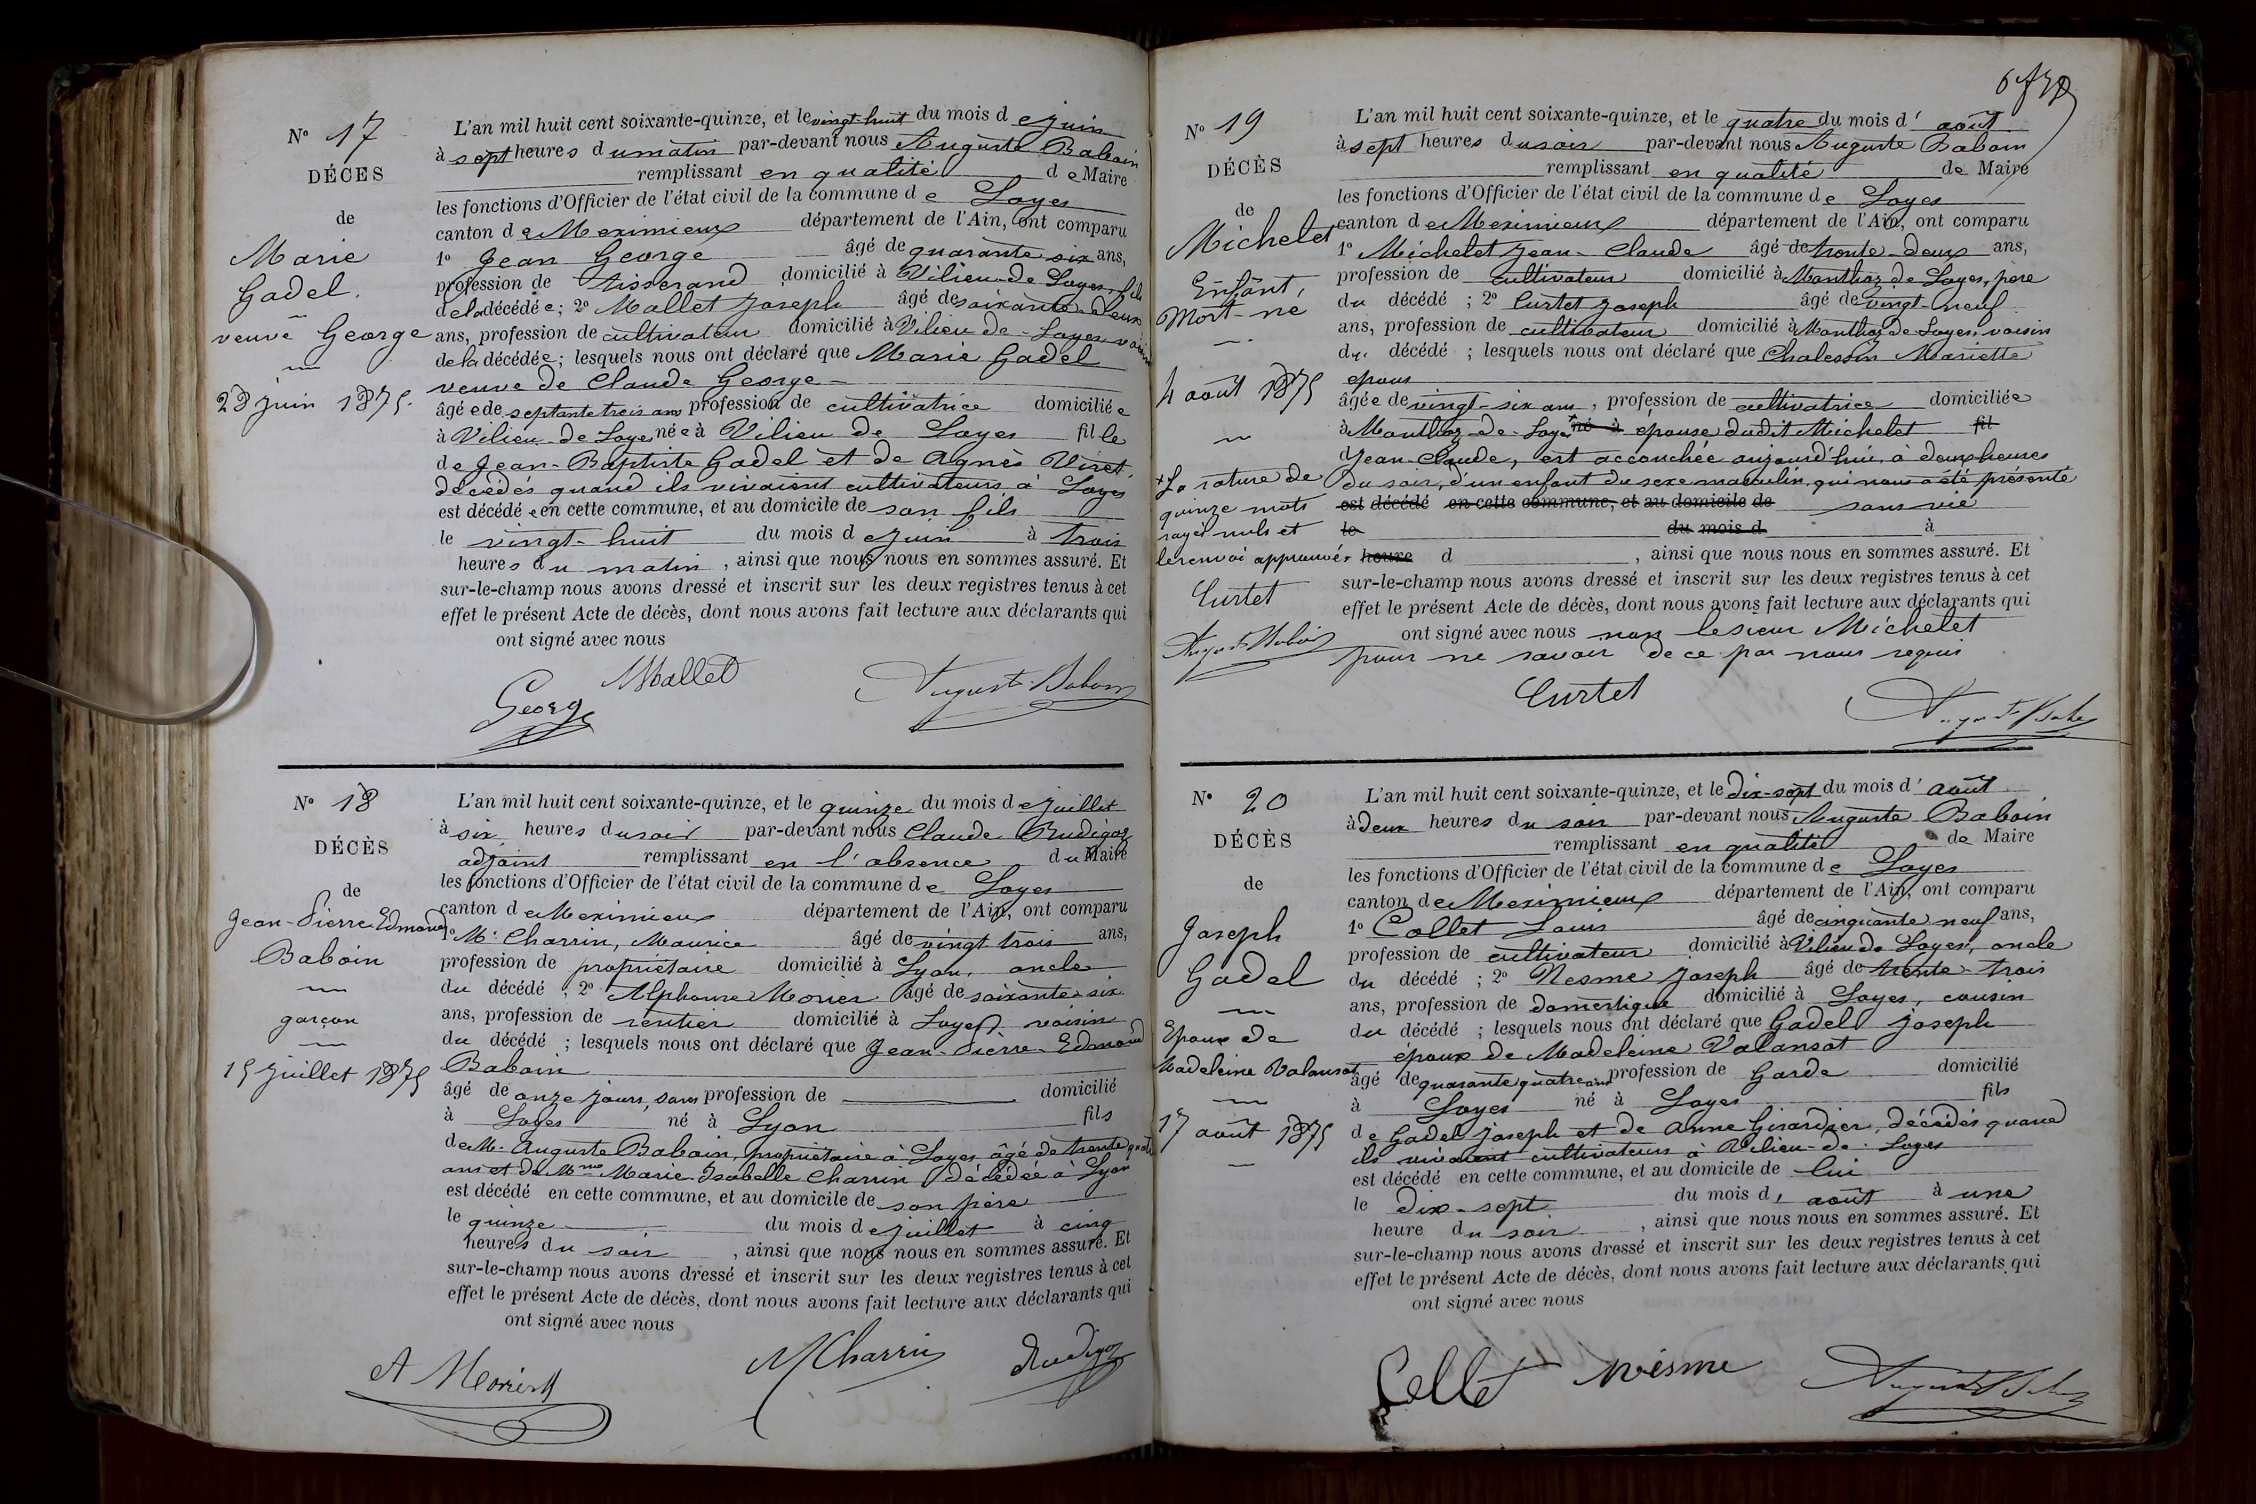 N° 17
DÉCÈS
de
Marie
Gadel
veuve George
28 juin 1875.
L'an mil huit cent soixante-quinze, et le vingt-huit du mois de juin
à sept heures du matin par-devant nous Auguste Baboin
remplissant en qualité de Maire
les fonctions d'Officier de l'état civil de la commune de Loyes
canton de Meximieux département de l'Ain, ont comparu
1° Jean George âgé de quarante six ans,
profession de tisserand domicilié à Vilieu-de-Loyes, fils
de la décédée; 2° Mallet Joseph âgé de soixante-deux
ans, profession de cultivateur domicilié à Vilieu-de-Loyes voisin
de la décédée; lesquels nous ont déclaré que Marie Gadel
veuve de Claude George
âgée de septante trois ans profession de cultivatrice domiciliée
à Vilieu-de-Loyes née à Vilieu de Loyes fille
de Jean-Baptiste Gadel et de Agnès Viret,
décédés quand ils vivaient cultivateurs à Loyes
est décédée en cette commune, et au domicile de son fils
le vingt-huit du mois de juin à trois
heures du matin, ainsi que nous nous en sommes assuré. Et
sur-le-champ nous avons dressé et inscrit sur les deux registres tenus à cet
effet le présent Acte de décès, dont nous avons fait lecture aux déclarants qui
ont signé avec nous
Mallet
George
Auguste Baboin
N° 18
DÉCÈS
de
Jean-Pierre-Edmond
Baboin
garçon
15 juillet 1875
L'an mil huit cent soixante-quinze, et le quinze du mois de juillet
à six heures du soir par-devant nous Claude Rudigoz
adjoint remplissant en l'absence du Maire
les fonctions d'Officier de l'état civil de la commune de Loyes
canton de Meximieux département de l'Ain, ont comparu
1° Mr Charrin, Maurice âgé de vingt trois ans,
profession de propriétaire domicilié à Lyon, oncle
du décédé; 2° Alphonse Morier âgé de soixante-six
ans, profession de rentier domicilié à Loyes, voisin
du décédé; lesquels nous ont déclaré que Jean-Pierre-Edmond
Baboin
âgé de onze jours, sans profession de domicilié
à Loyes né à Lyon fils
de Mr Auguste Baboin, propriétaire à Loyes âgé de trente quatre
ans et de Mme Marie-Isabelle Charrin, décédée à Lyon
est décédé en cette commune, et au domicile de son père
le quinze du mois de juillet à cinq
heures du soir, ainsi que nous nous en sommes assuré. Et
sur-le-champ nous avons dressé et inscrit sur les deux registres tenus à cet
effet le présent Acte de décès, dont nous avons fait lecture aux déclarants qui
ont signé avec nous
A Morier
M Charrin
Rudigoz
N° 19
DÉCÈS
de
Michelet
Enfant,
Mort-né
4 août 1875
+ La rature de
quinze mots
rayés nuls et
le renvoi approuvés
Curtet
Auguste Baboin
L'an mil huit cent soixante-quinze, et le quatre du mois d'août
à sept heures du soir par-devant nous Auguste Baboin
remplissant en qualité de Maire
les fonctions d'Officier de l'état civil de la commune de Loyes
canton de Meximieux département de l'Ain, ont comparu
1° Michelet Jean-Claude âgé de trente-deux ans,
profession de cultivateur domicilié à Monthoz de Loyes, père
du décédé; 2° Curtet Joseph âgé de vingt-neuf
ans, profession de cultivateur domicilié à Monthoz de Loyes, voisin
du décédé; lesquels nous ont déclaré que Mariette
epous
âgée de vingt-six ans, profession de cultivatrice domiciliée
à Monthoz-de-Loyes + né à épouse dudit Michelet fil
Jean-Claude, est accouchée aujourd'hui, à deux heures
du soir, d'un enfant du sexe masculin, qui nous a été présenté
est décédé en cette commune, et au domicile de sans vie
le du mois d à
heure d , ainsi que nous nous en sommes assuré. Et
sur-le-champ nous avons dressé et inscrit sur les deux registres tenus à cet
effet le présent Acte de décès, dont nous avons fait lecture aux déclarants qui
ont signé avec nous non le sieur Michelet
pour ne savoir de ce par nous requis
Curtet
Auguste Baboin
N° 20
DÉCÈS
de
Joseph
Gadel
Epoux de
Madeleine Valansot
17 août 1875
L'an mil huit cent soixante-quinze, et le dix-sept du mois d'août
à deux heures du soir par-devant nous Auguste Baboin
remplissant en qualité de Maire
les fonctions d'Officier de l'état civil de la commune de Loyes
canton de Meximieux département de l'Ain, ont comparu
1° Collet Louis âgé de cinquante neuf ans,
profession de cultivateur domicilié à Vilieu de Loyes, oncle
du décédé; 2° Nesme Joseph âgé de trente-trois
ans, profession de domestique domicilié à Loyes, cousin
du décédé; lesquels nous ont déclaré que Gadel Joseph
époux de Madeleine Valansot
âgé de quarante quatre ans profession de Garde domicilié
à Loyes né à Loyes fils
de Gadel Joseph et de Anne Girardier, décédés quand
ils vivaient cultivateurs à Vilieu-de-Loyes
est décédé en cette commune, et au domicile de lui
le dix-sept du mois d'août à une
heure du soir, ainsi que nous nous en sommes assuré. Et
sur-le-champ nous avons dressé et inscrit sur les deux registres tenus à cet
effet le présent Acte de décès, dont nous avons fait lecture aux déclarants qui
ont signé avec nous
Collet
Nésme
Auguste Baboin